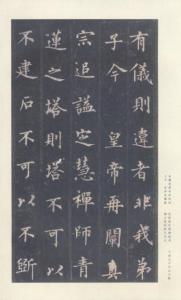 有儀則違者非我弟
子今 皇帝再闡真
宗追謚定慧禪師青
蓮之塔則塔不可以
不建石不可以不斲